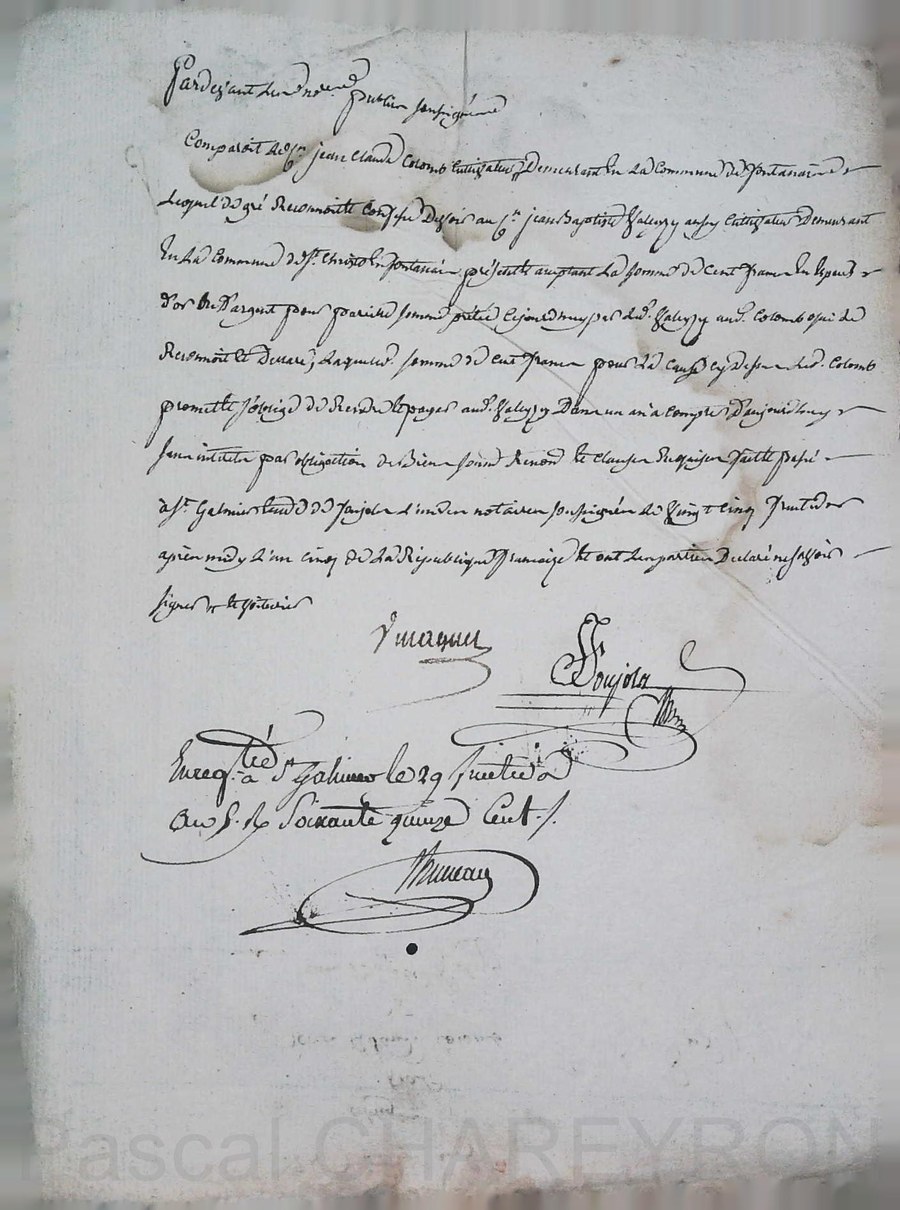 Pardevant les nres
publics soussignés
Comparoit le Cn jean Claude Colomb Cultivateur Demeurant En La Commune de fontanais
Lequel de gré Reconnoit et Confesse Devoir au Cn jean Baptiste aussy Cultivateur Demeurant
En La Commune de St. Christo En fontanais présent et acceptant La somme de Cent francs En Especes
d'or Et d'argent pour pareille somme prêtée Cejourdhuy par led. au d. Colomb qui le
Reconnoit Et Declare, Laquelle somme de Cent francs pour La Cause Cy Dessus led. Colomb
promet et s'oblige de Rendre et payer aud. Dans un an a Compter D'aujourdhuy
sans interets par obligation de Biens soumd Renond et Clauses Requises fait et passé
à St. Galmier Etude de Soujols L'un des notaires soussignés Le Vingt Cinq fructidor
après midy L'an Cinq de La République francaise Et ont Les parties Declaré ne savoir
signer
Soujols
Enregtré à St Galmier le 29 fructidor
au 5. R. Soixante quinze Cent./.
Pascal CHAREYRON